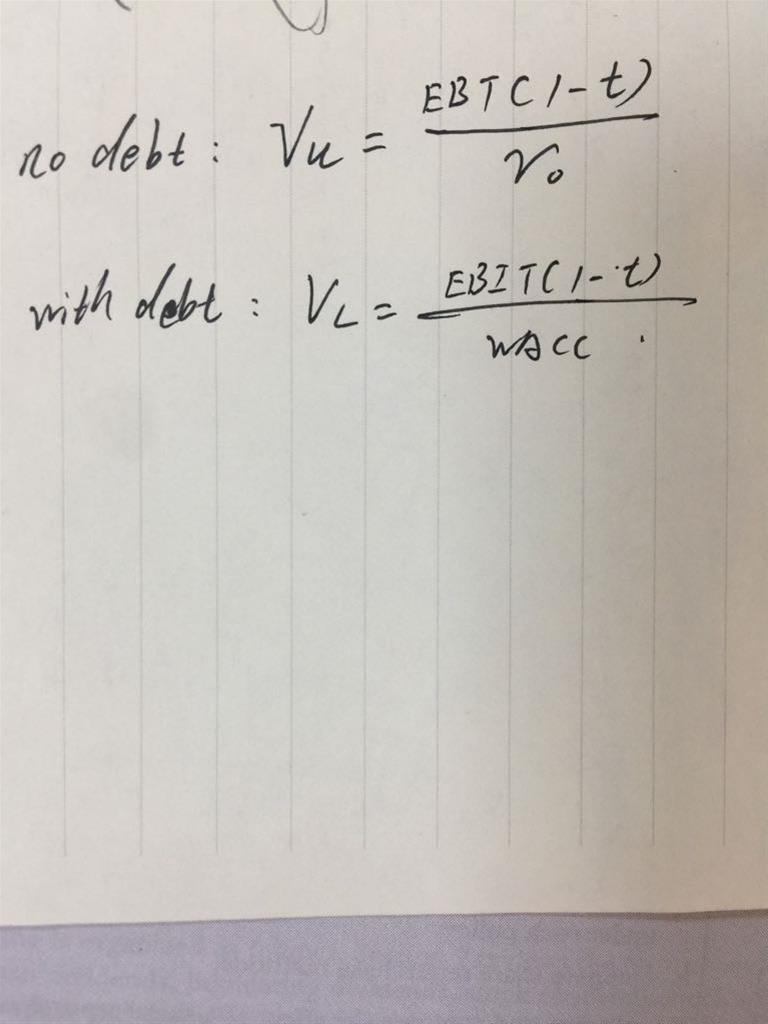 no debt: Vu = EBT(1-t)
r₀
with debt: VL = EBIT(1-t)
WACC